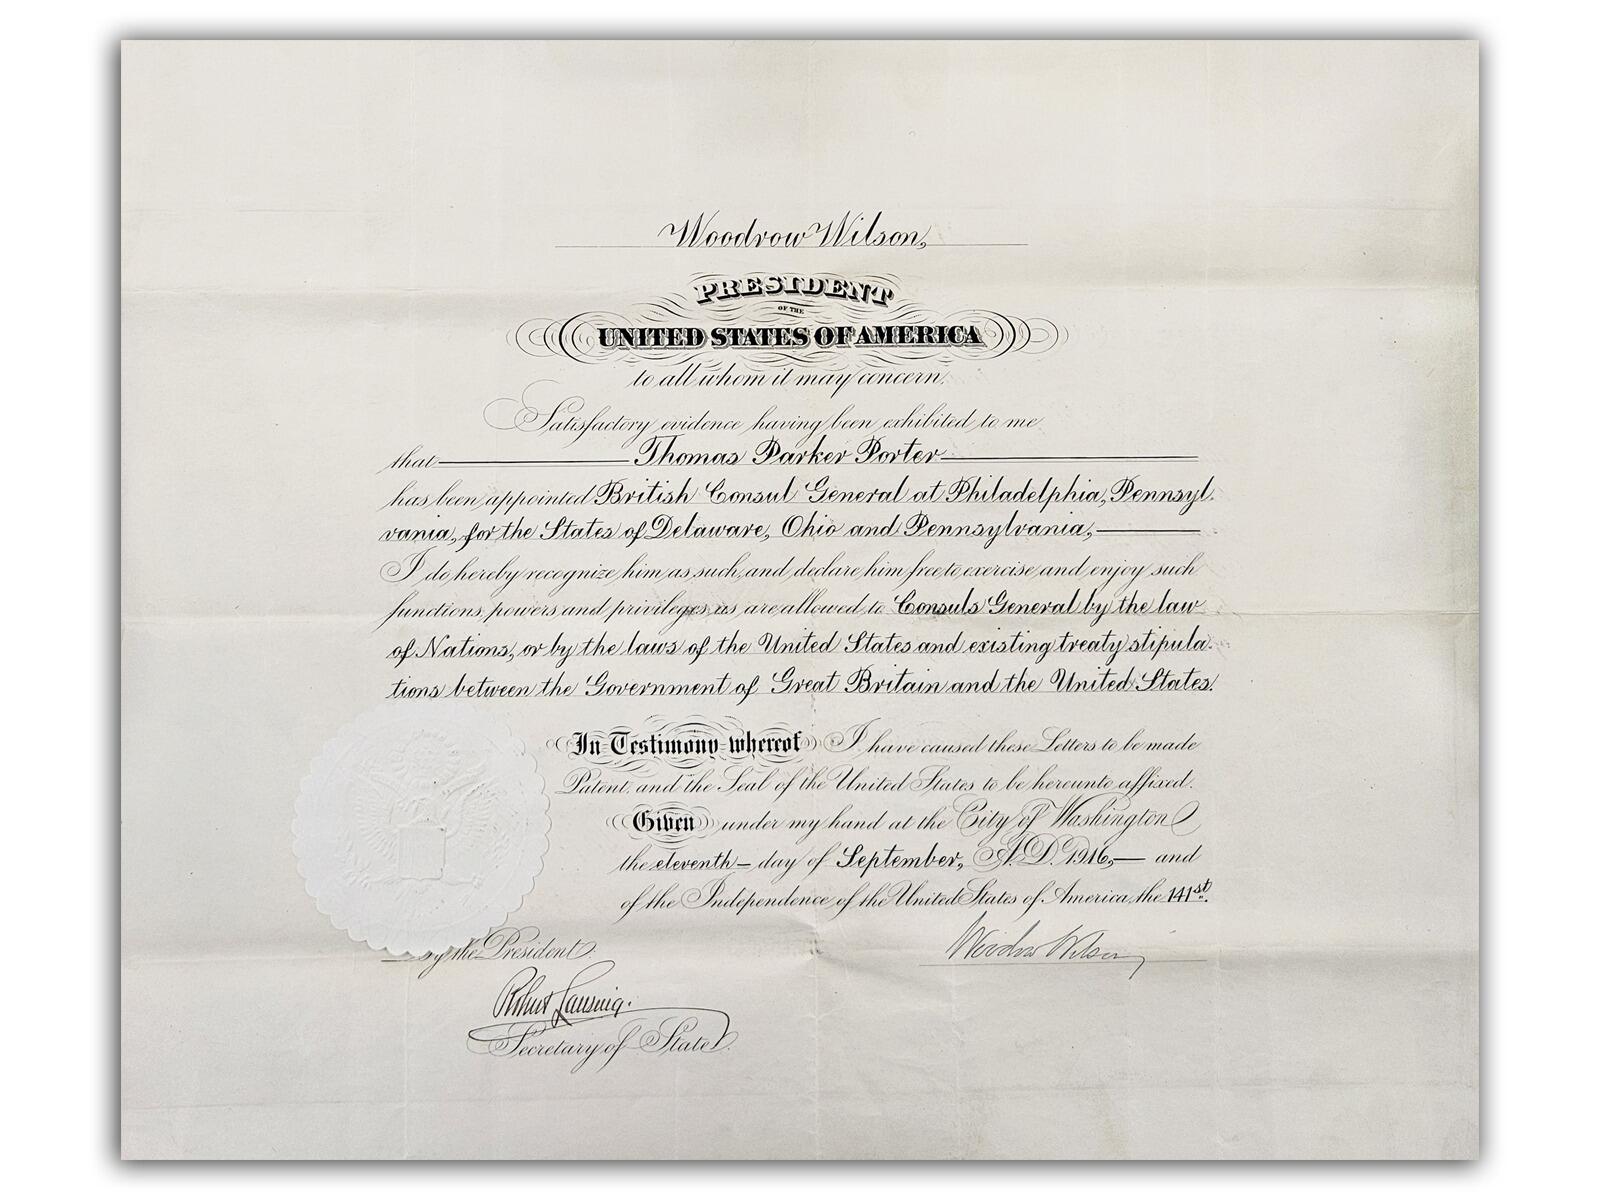 Woodrow Wilson,
PRESIDENT
OF THE
UNITED STATES OF AMERICA
to all whom it may concern.
Satisfactory evidence having been exhibited to me
that Thomas Parker Porter
has been appointed British Consul General at Philadelphia, Pennsyl-
vania, for the States of Delaware, Ohio and Pennsylvania,
I do hereby recognize him as such, and declare him free to exercise and enjoy such
functions, powers and privileges as are allowed to Consuls General by the law
of Nations, or by the laws of the United States and existing treaty stipula-
tions between the Government of Great Britain and the United States.
In Testimony whereof I have caused these Letters to be made
Patent, and the Seal of the United States to be hereunto affixed.
Given under my hand at the City of Washington
the eleventh day of September, A.D. 1916, and
of the Independence of the United States of America, the 141st.
By the President. Woodrow Wilson
Robert Lansing.
Secretary of State.